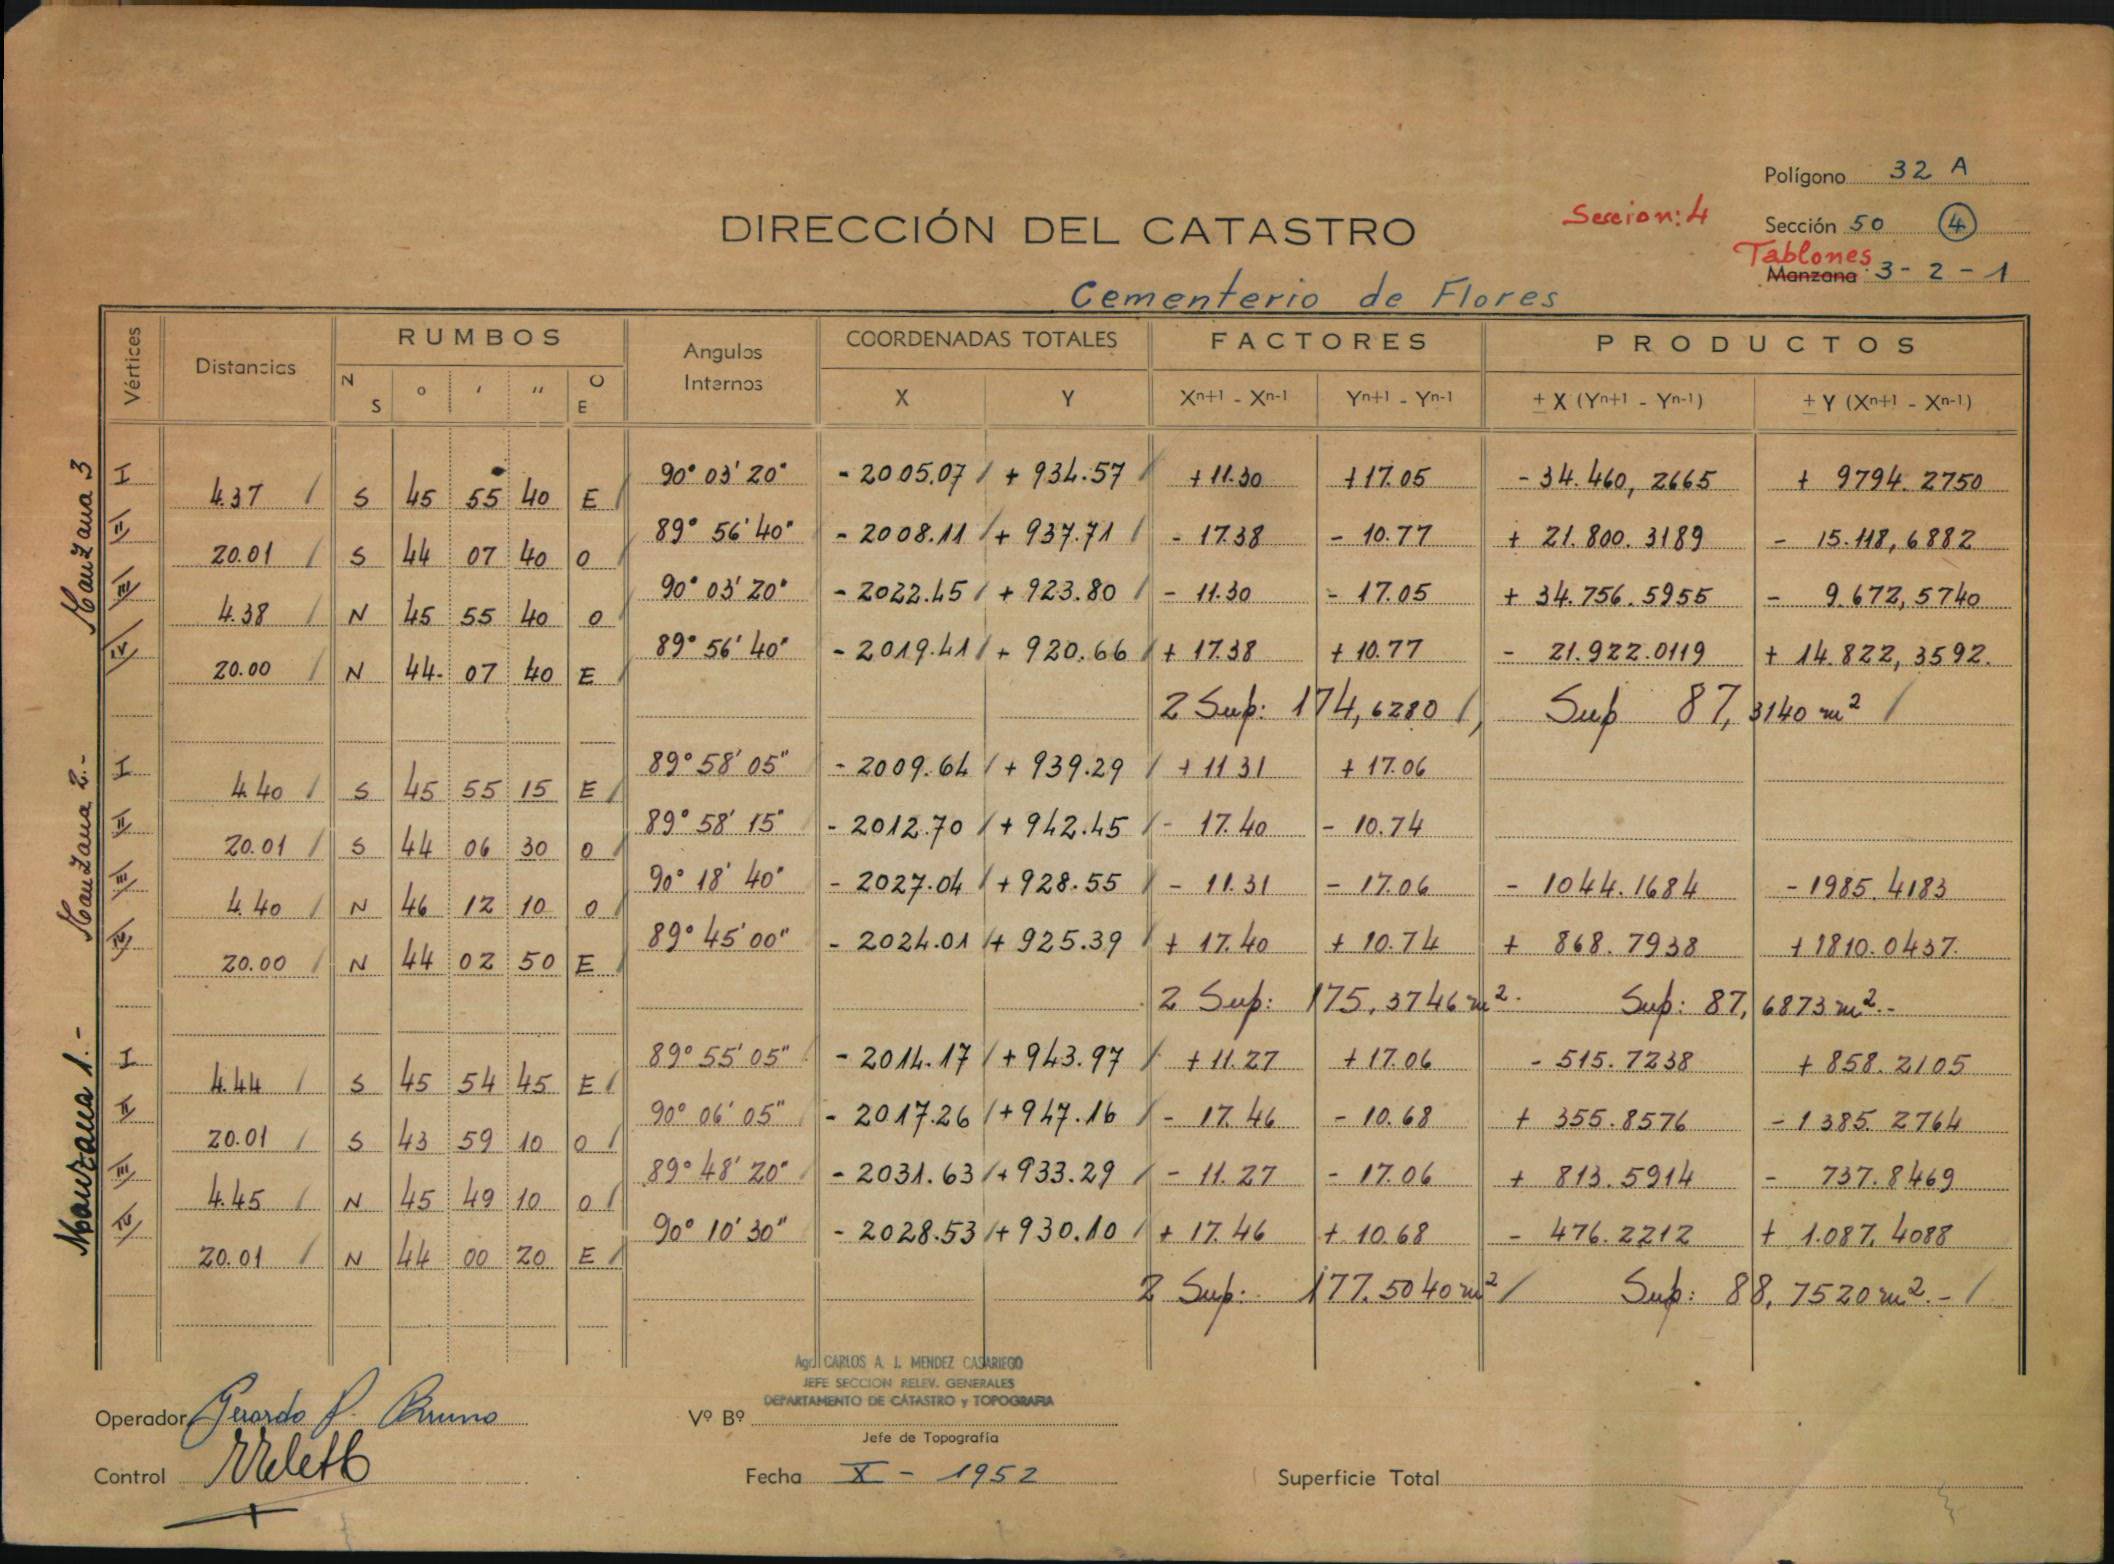 Polígono 32 A
DIRECCIÓN DEL CATASTRO
Seccion: 4
Sección 50 4
Tablones
Manzana 3 - 2 - 1
Cementerio de Flores
Vértices Distancias RUMBOS Angulos Internos COORDENADAS TOTALES FACTORES PRODUCTOS
N S ° ' " O E X Y Xn+1 - Xn-1 Yn+1 - Yn-1 ± X (Yn+1 - Yn-1) ± Y (Xn+1 - Xn-1)
Manzana 3
I 90° 03' 20" - 2005.07 / + 934.57 / + 11.30 + 17.05 - 34.460, 2665 + 9794. 2750
4.37 / S 45 55 40 E /
II 89° 56' 40" - 2008.11 / + 937.71 / - 17.38 - 10.77 + 21.800. 3189 - 15.118, 6882
20.01 / S 44 07 40 O /
III 90° 03' 20" - 2022.45 / + 923.80 / - 11.30 - 17.05 + 34.756. 5955 - 9.672, 5740
4.38 / N 45 55 40 O /
IV 89° 56' 40" - 2019.41 / + 920.66 / + 17.38 + 10.77 - 21.922.0119 + 14.822, 3592.
20.00 / N 44. 07 40 E /
2 Sup: 174,6280 /, Sup 87,3140 m² /
Manzana 2.-
I 89° 58' 05" - 2009.64 / + 939.29 / + 11 31 + 17.06
4.40 / S 45 55 15 E /
II 89° 58' 15" - 2012.70 / + 942.45 / - 17.40 - 10.74
20.01 / S 44 06 30 O /
III 90° 18' 40" - 2027.04 / + 928.55 / - 11.31 - 17.06 - 1044.1684 - 1985.4183
4.40 / N 46 12 10 O /
IV 89° 45' 00" - 2024.01 / + 925.39 / + 17.40 + 10.74 + 868.7938 + 1810.0437.
20.00 / N 44 02 50 E /
2 Sup: 175,3746 m². Sup: 87,6873 m².-
Manzana 1.-
I 89° 55' 05" - 2014.17 / + 943.97 / + 11.27 + 17.06 - 515.7238 + 858.2105
4.44 / S 45 54 45 E /
II 90° 06' 05" - 2017.26 / + 947.16 / - 17.46 - 10.68 + 355.8576 - 1385.2764
20.01 / S 43 59 10 O /
III 89° 48' 20" - 2031.63 / + 933.29 / - 11.27 - 17.06 + 813.5914 - 737.8469
4.45 / N 45 49 10 O /
IV 90° 10' 30" - 2028.53 / + 930.10 / + 17.46 + 10.68 - 476.2212 + 1.087.4088
20.01 / N 44 00 20 E /
2 Sup: 177.5040 m² / Sup: 88,7520 m².- /
Agr. CARLOS A. J. MENDEZ CASARIEGO
JEFE SECCION RELEV. GENERALES
DEPARTAMENTO DE CATASTRO y TOPOGRAFIA
Operador Gerardo P. Bruno Vº Bº
Jefe de Topografía
Control Fecha X - 1952 Superficie Total